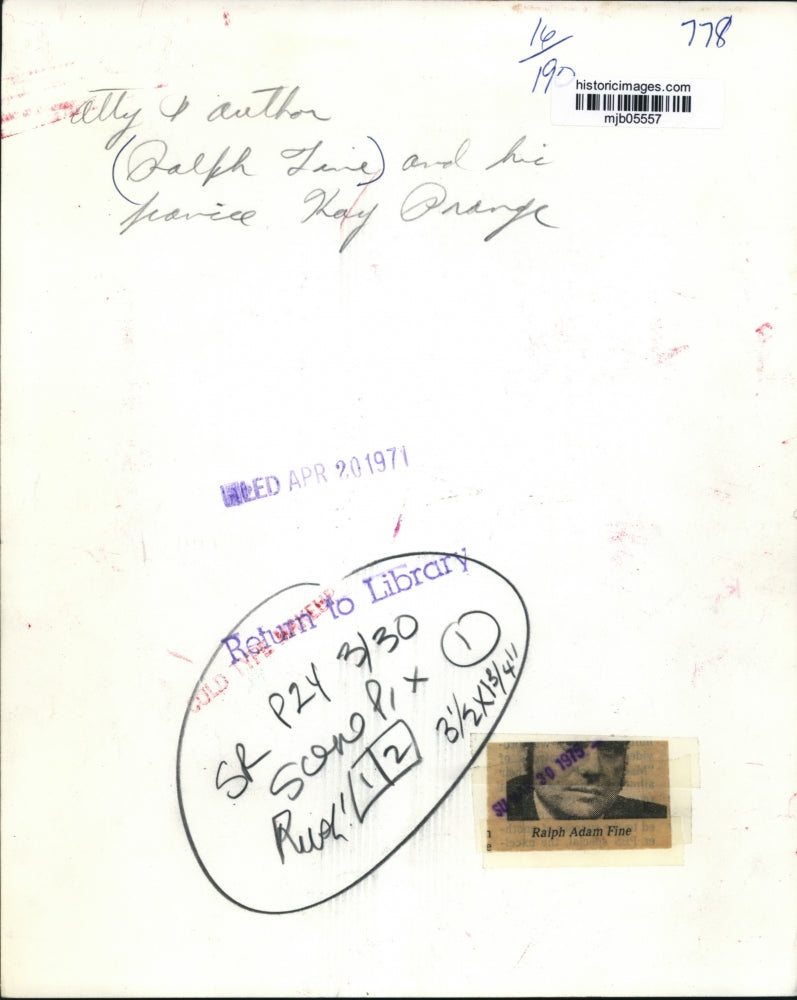 16/190
778
historicimages.com
mjb05557
atty & author
(Ralph Fine) and his
fiancee Kay Prange
FILED APR 20 1971
Return to Library
COLD TYPE MAKEUP
SR P24 3/30
1
Scene Pix
3 1/2 X 1 3/4"
Rush! 1 2
30 1975
Ralph Adam Fine